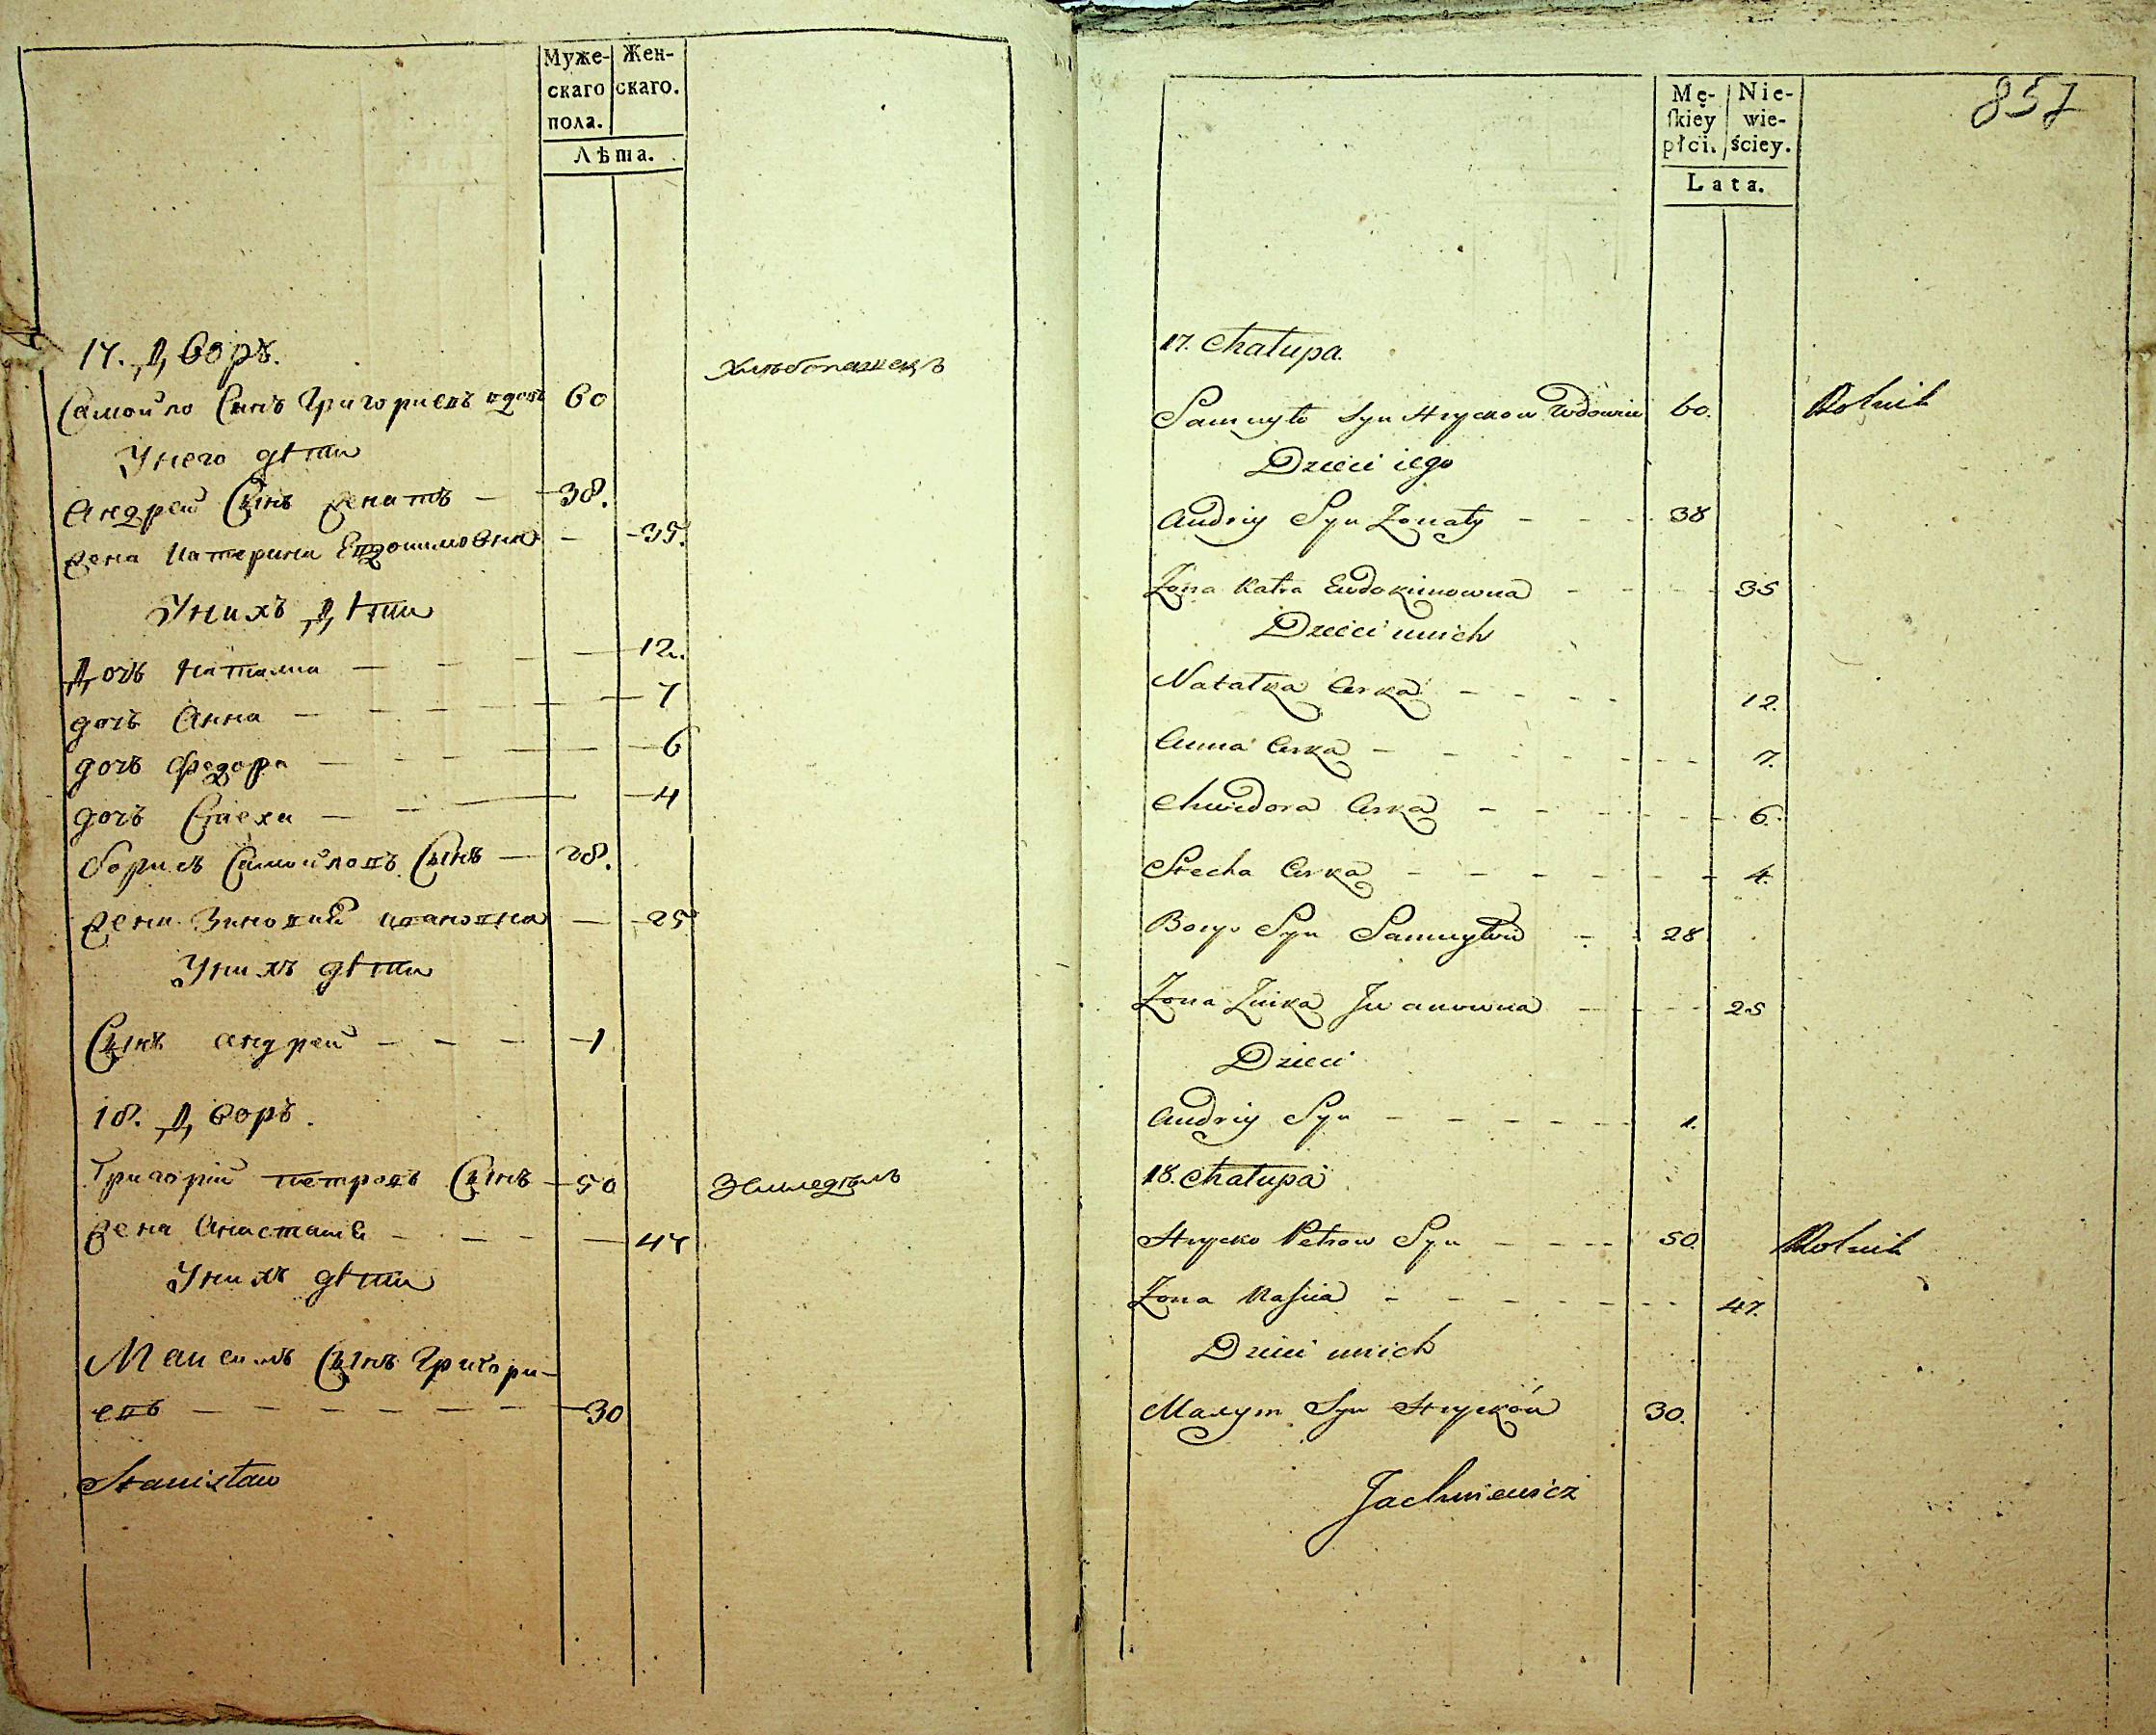 Муже-
скаго
пола.
Жен-
скаго.
Лѣта.
17. Дворъ.
Самойло Сынъ Григориевъ вдовъ 60 Хлѣбопашецъ
Унего дѣти
Андрей Сынъ женатъ — 38.
жена Катерина Евдокимовна — 35.
Унихъ Дѣти
Дочь Наталиа — — — 12.
дочь Анна — — — 7
дочь Федора — — — 6
дочь Стеха — — — 4
Борисъ Самойловъ Сынъ — 28.
жена Зиновия Ивановна — 25
Унихъ дѣти
Сынъ андрей — — — 1
18. Дворъ.
Григорій петровъ Сынъ — 50 Земледѣлъ
жена Анастасия — — — 47
Унихъ дѣти
Максимъ Сынъ Григори-
евъ — — — — — — 30
Stanisław
857
Mę-
skiey
płci.
Nie-
wie-
ściey.
Lata.
17. Chałupa.
Samuyło Syn Hryckow Wdowiec 60. Rolnik
Dzieci iego
Andriy Syn Żonaty - - - 38
Żona Katra Ewdokimowna - - - 35
Dzieci unich
Natałka Corka - - - - 12.
Anna Corka - - - - - - - 7.
Chwedora Corka - - - - - - 6.
Stecha Corka - - - - - - 4.
Borys Syn Samuyłów - - 28
Żona Zinka Jwanowna - - - 25
Dzieci
Andriy Syn - - - - - 1.
18. Chałupa
Hrycko Petrow Syn - - - - 50. Rolnik
Żona Nascia - - - - - - - 47.
Dzieci unich
Maxym Syn Hrycków 30.
Jachniewicz